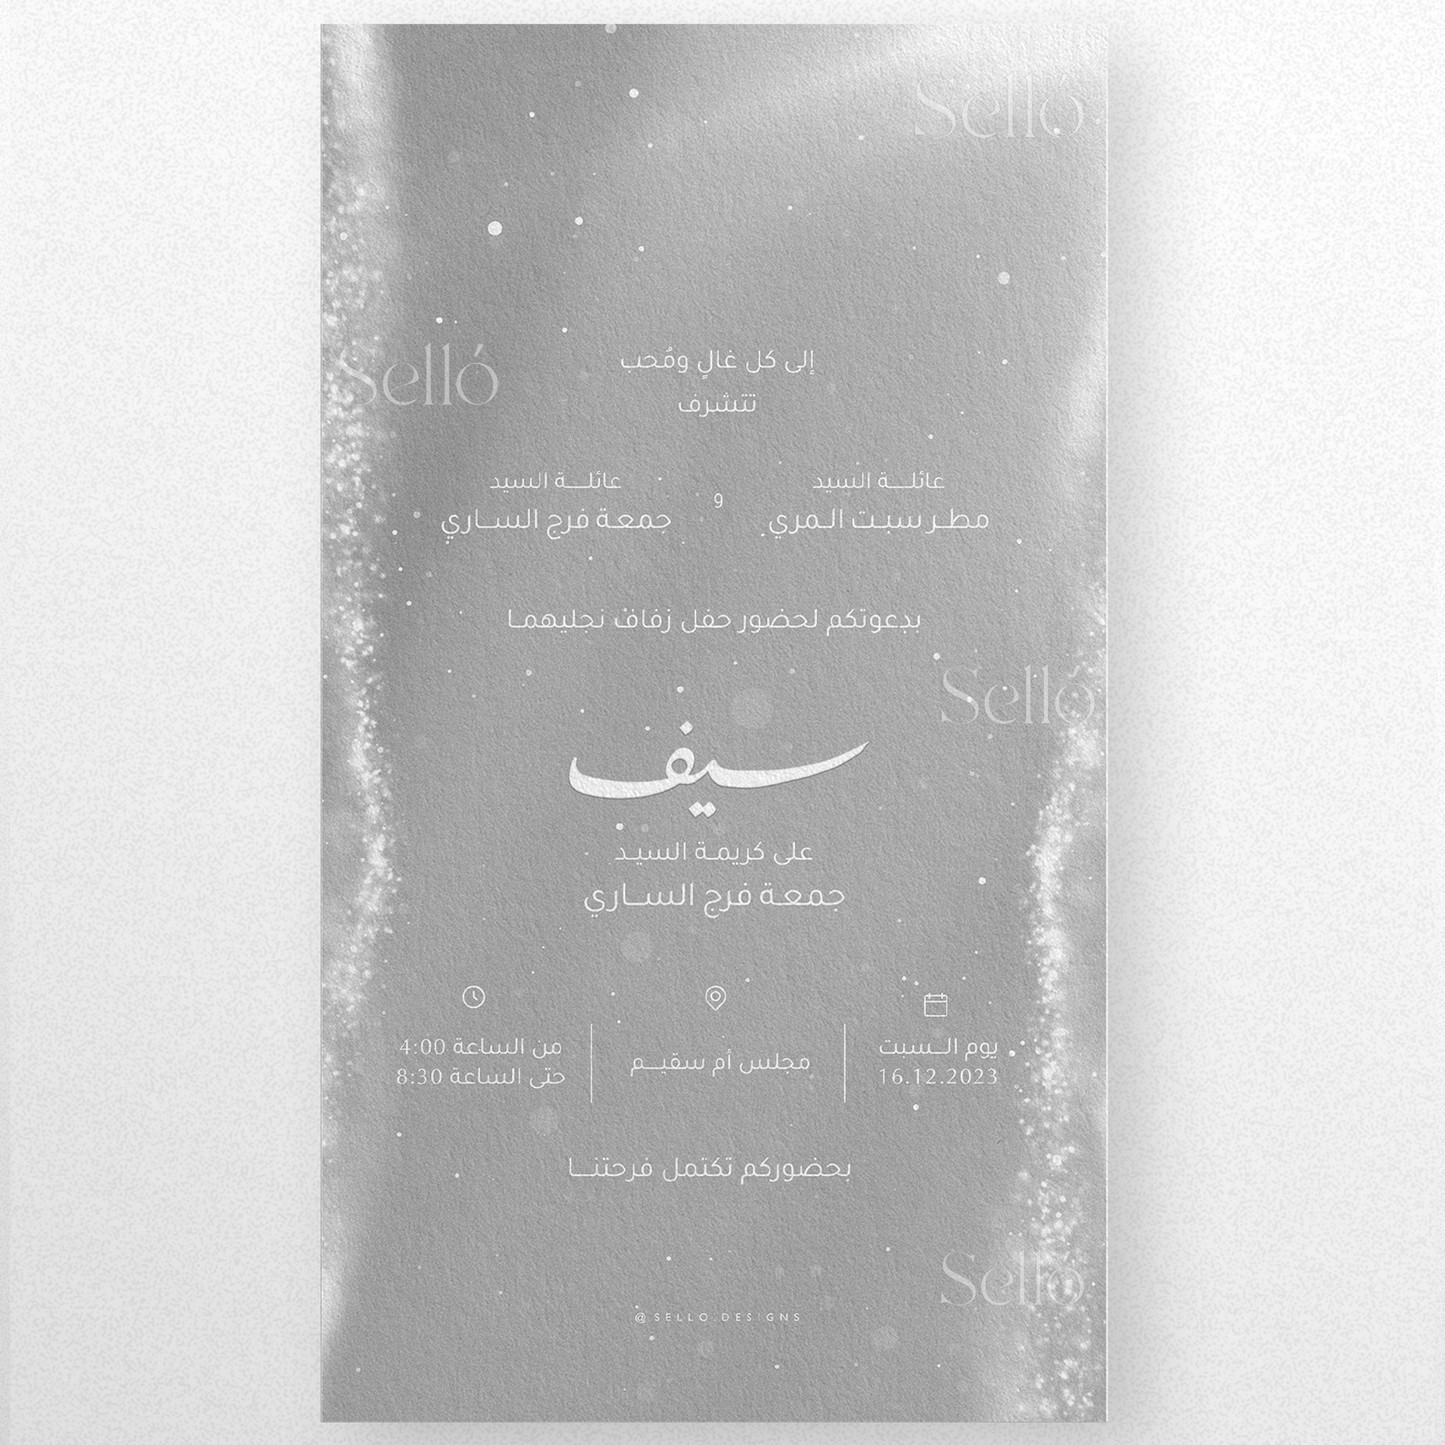 Selló
إلى كل غالٍ ومُحب
تتشرف
Selló
عائلـــة السيد
مطـر سبـت الـمري
و
عائلـــة السيد
جمعـة فرج السـاري
بدعوتكم لحضور حفل زفاف نجليهمـا
Selló
سيف
على كريمـة السيـد
جمعـة فرج السـاري
يوم الــسبت
16.12.2023
مجلس أم سقيــم
من الساعة 4:00
حتى الساعة 8:30
بحضوركم تكتمل فرحتنــا
Selló
@SELLO.DESIGNS